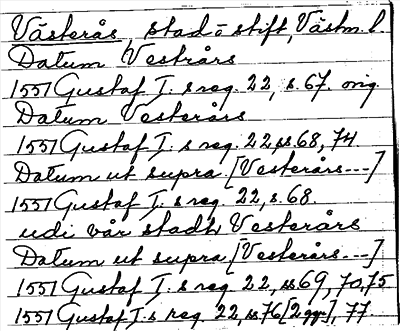 Västerås, stad o stift, Västm. l.
Datum Vestrårs
1551 Gustaf I:s reg. 22, s. 67. orig.
Datum Vesterårs
1551 Gustaf I:s reg. 22, ss 68, 74
Datum ut supra [Vesterårs---]
1551 Gustaf I:s reg. 22, s. 68.
udi vår stadh Vesterårs
Datum ut supra [Vesterårs---]
1551 Gustaf I:s reg. 22, ss 69, 70, 75
1551 Gustaf I:s reg. 22, ss 76 [2 ggr], 77.